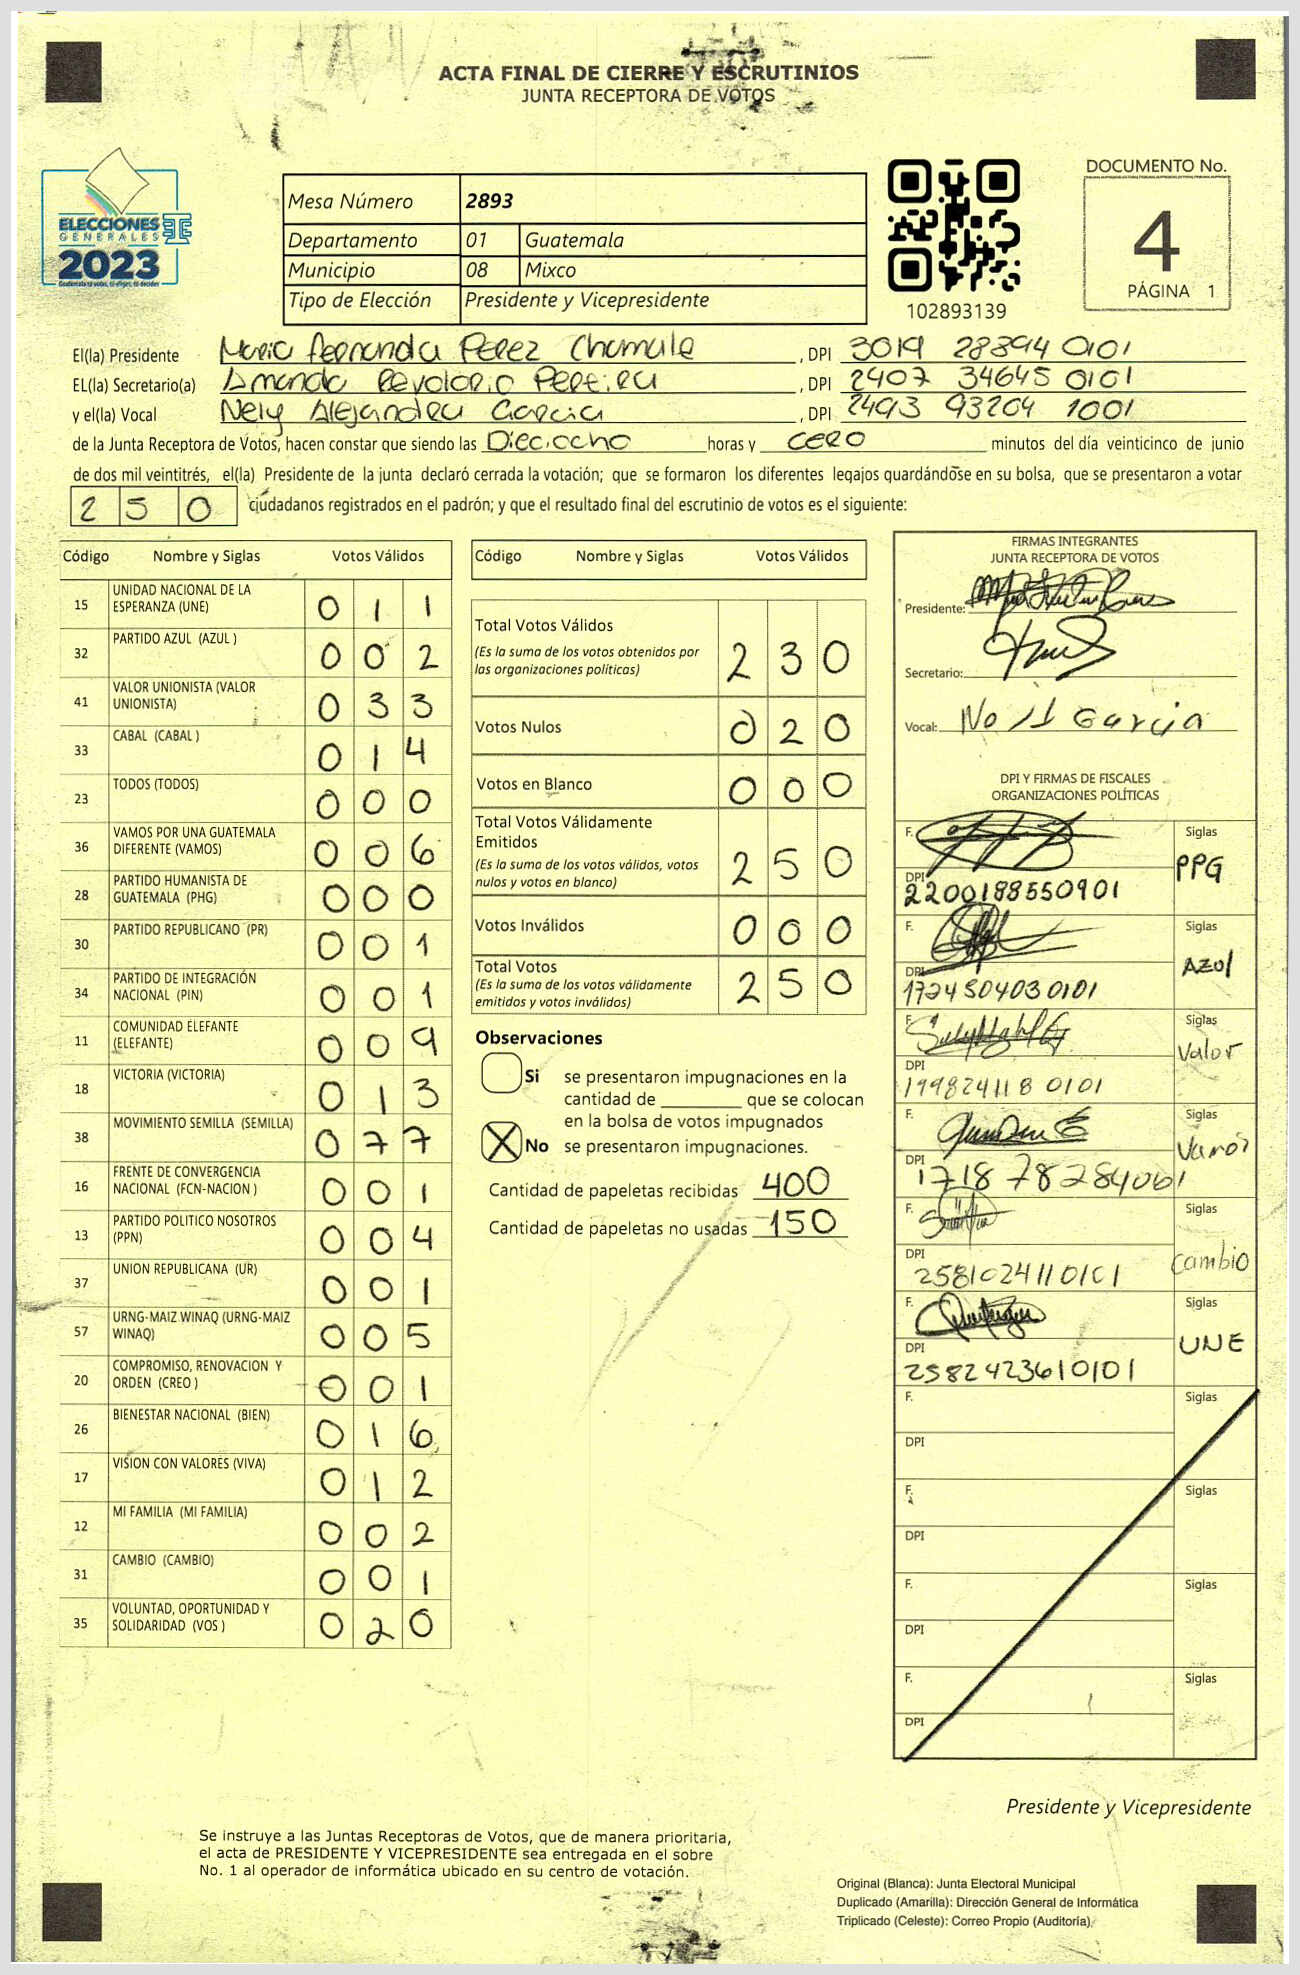 ACTA FINAL DE CIERRE Y ESCRUTINIOS
JUNTA RECEPTORA DE VOTOS
ELECCIONES
GENERALES
2023
Mesa Número 2893
Departamento 01 Guatemala
Municipio 08 Mixco
Tipo de Elección Presidente y Vicepresidente
102893139
DOCUMENTO No.
4
PÁGINA 1
El(la) Presidente Maria Fernanda Perez Chamale, DPI 3019 28894 0101
EL(la) Secretario(a) Amanda Revolorio Pereira, DPI 2407 34645 0101
y el(la) Vocal Nely Alejandra Garcia, DPI 2493 93204 1001
de la Junta Receptora de Votos, hacen constar que siendo las Dieciocho horas y cero minutos del día veinticinco de junio
de dos mil veintitrés, el(la) Presidente de la junta declaró cerrada la votación; que se formaron los diferentes legajos quardándose en su bolsa, que se presentaron a votar
250 ciudadanos registrados en el padrón; y que el resultado final del escrutinio de votos es el siguiente:
Código Nombre y Siglas Votos Válidos
15 UNIDAD NACIONAL DE LA ESPERANZA (UNE) 011
32 PARTIDO AZUL (AZUL ) 002
41 VALOR UNIONISTA (VALOR UNIONISTA) 033
33 CABAL (CABAL ) 014
23 TODOS (TODOS) 000
36 VAMOS POR UNA GUATEMALA DIFERENTE (VAMOS) 006
28 PARTIDO HUMANISTA DE GUATEMALA (PHG) 000
30 PARTIDO REPUBLICANO (PR) 001
34 PARTIDO DE INTEGRACIÓN NACIONAL (PIN) 001
11 COMUNIDAD ELEFANTE (ELEFANTE) 009
18 VICTORIA (VICTORIA) 013
38 MOVIMIENTO SEMILLA (SEMILLA) 077
16 FRENTE DE CONVERGENCIA NACIONAL (FCN-NACION ) 001
13 PARTIDO POLITICO NOSOTROS (PPN) 004
37 UNION REPUBLICANA (UR) 001
57 URNG-MAIZ WINAQ (URNG-MAIZ WINAQ) 005
20 COMPROMISO, RENOVACION Y ORDEN (CREO ) 001
26 BIENESTAR NACIONAL (BIEN) 016
17 VISION CON VALORES (VIVA) 012
12 MI FAMILIA (MI FAMILIA) 002
31 CAMBIO (CAMBIO) 001
35 VOLUNTAD, OPORTUNIDAD Y SOLIDARIDAD (VOS ) 020
Código Nombre y Siglas Votos Válidos
Total Votos Válidos 230
(Es la suma de los votos obtenidos por
las organizaciones políticas)
Votos Nulos 020
Votos en Blanco 000
Total Votos Válidamente
Emitidos 250
(Es la suma de los votos válidos, votos
nulos y votos en blanco)
Votos Inválidos 000
Total Votos 250
(Es la suma de los votos válidamente
emitidos y votos inválidos)
Observaciones
Si se presentaron impugnaciones en la
cantidad de ________ que se colocan
en la bolsa de votos impugnados
X No se presentaron impugnaciones.
Cantidad de papeletas recibidas 400
Cantidad de papeletas no usadas 150
FIRMAS INTEGRANTES
JUNTA RECEPTORA DE VOTOS
Presidente:
Secretario:
Vocal: Garcia
DPI Y FIRMAS DE FISCALES
ORGANIZACIONES POLÍTICAS
F. Siglas PPG
DPI 2200188550901
F. Siglas Azul
DPI 1724504030101
F. Siglas Valor
DPI 199824118 0101
F. Siglas Vamos
DPI 1718 78284061
F. Siglas Cambio
DPI 2581024110101
F. Siglas UNE
DPI 2582423610101
F. Siglas
DPI
F. Siglas
DPI
F. Siglas
DPI
F. Siglas
DPI
Presidente y Vicepresidente
Se instruye a las Juntas Receptoras de Votos, que de manera prioritaria,
el acta de PRESIDENTE Y VICEPRESIDENTE sea entregada en el sobre
No. 1 al operador de informática ubicado en su centro de votación.
Original (Blanca): Junta Electoral Municipal
Duplicado (Amarilla): Dirección General de Informática
Triplicado (Celeste): Correo Propio (Auditoría)